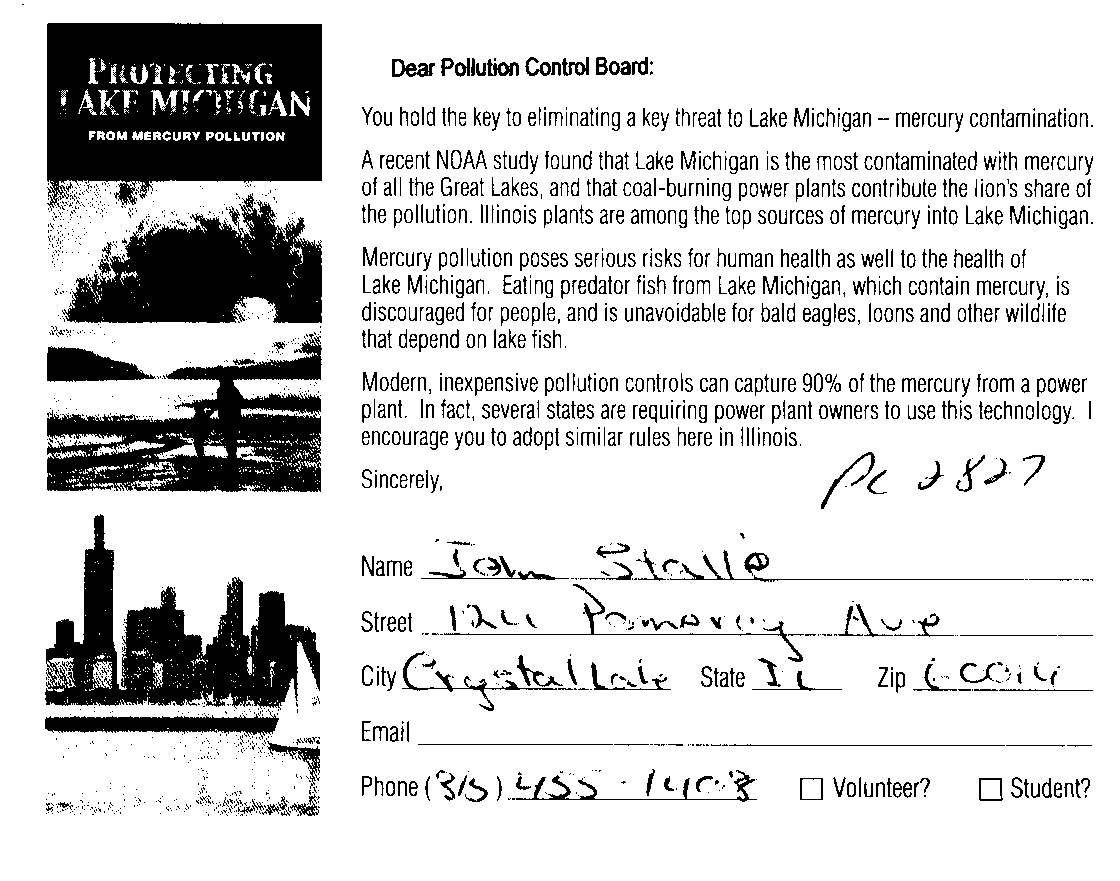 PROTECTING
LAKE MICHIGAN
FROM MERCURY POLLUTION
Dear Pollution Control Board:
You hold the key to eliminating a key threat to Lake Michigan – mercury contamination.
A recent NOAA study found that Lake Michigan is the most contaminated with mercury
of all the Great Lakes, and that coal-burning power plants contribute the lion's share of
the pollution. Illinois plants are among the top sources of mercury into Lake Michigan.
Mercury pollution poses serious risks for human health as well to the health of
Lake Michigan. Eating predator fish from Lake Michigan, which contain mercury, is
discouraged for people, and is unavoidable for bald eagles, loons and other wildlife
that depend on lake fish.
Modern, inexpensive pollution controls can capture 90% of the mercury from a power
plant. In fact, several states are requiring power plant owners to use this technology. I
encourage you to adopt similar rules here in Illinois.
Sincerely,
PC 2827
Name John
Street Ave
City Crystal Lake State IL Zip 60014
Email
Phone (815) 455-1403 Volunteer? Student?